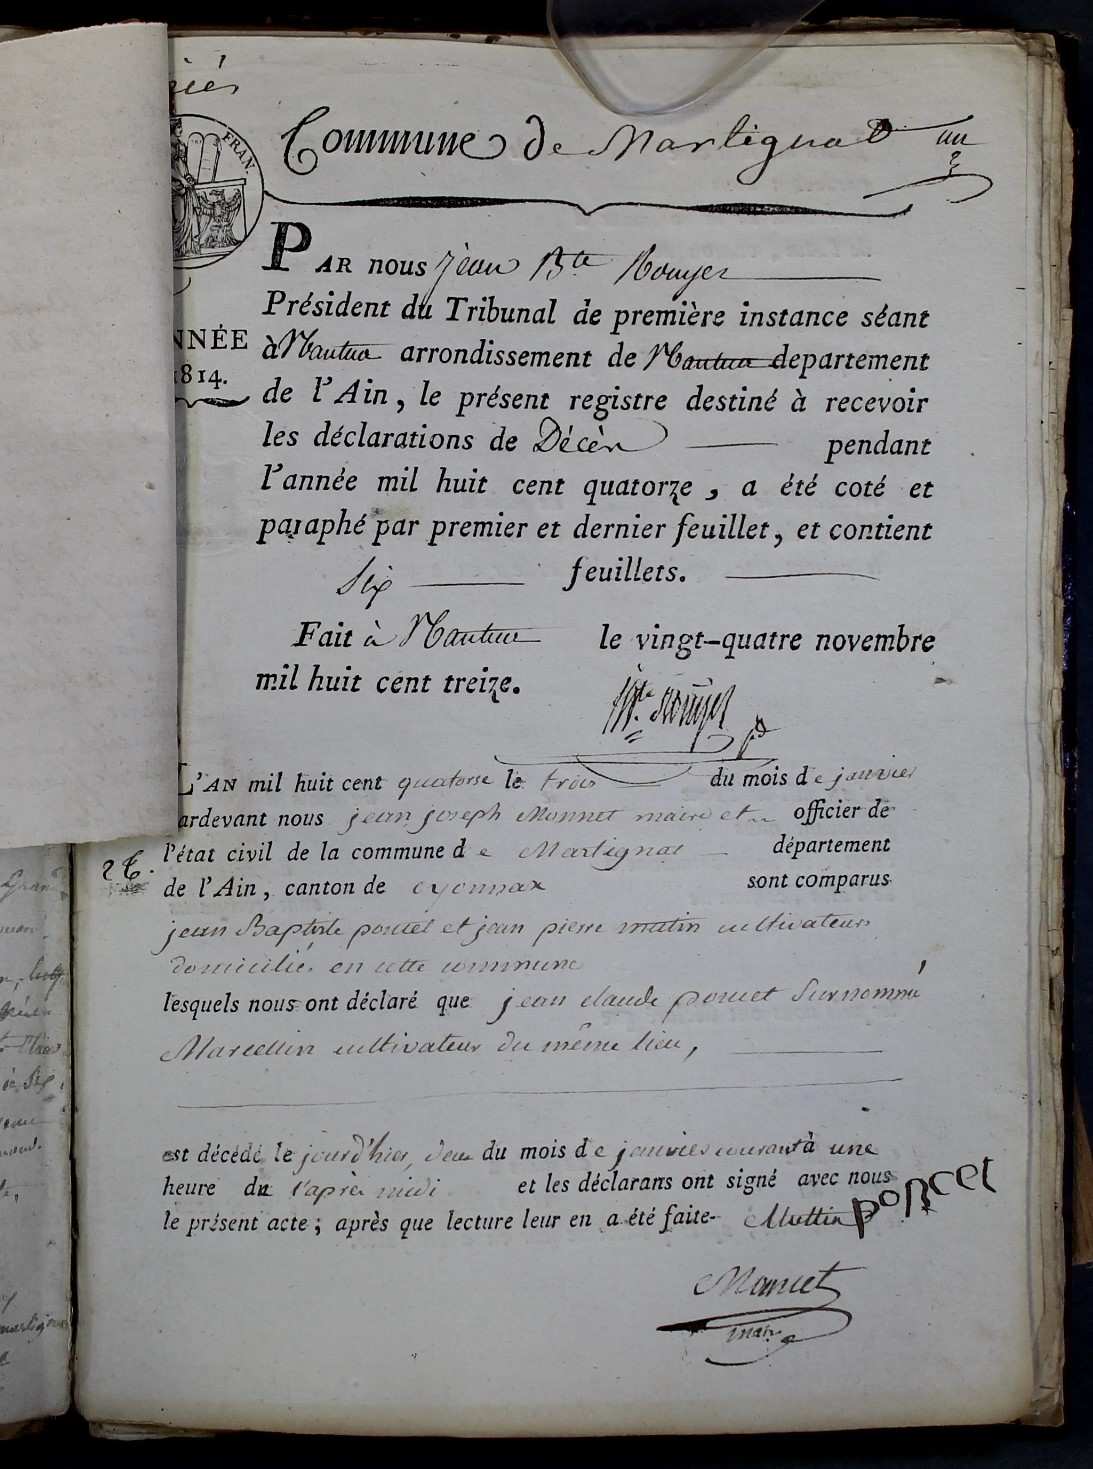 Commune de Martignat
un
FRAN.
PAR nous jean Bte Rouyer
Président du Tribunal de première instance séant
NNÉE
à Nantua arrondissement de Nantua departement
1814.
de l'Ain, le présent registre destiné à recevoir
les déclarations de Décès pendant
l'année mil huit cent quatorze, a été coté et
paraphé par premier et dernier feuillet, et contient
Six feuillets.
Fait à Nantua le vingt-quatre novembre
mil huit cent treize.
Bte Rouyer
L'AN mil huit cent quatorse le trois du mois de janvier
ardevant nous jean joseph Monnet maire et officier de
l'état civil de la commune de Martignat département
de l'Ain, canton de oyonnax sont comparus
jean Baptiste poncet et jean pierre mutin cultivateurs
domiciliés en cette commune
lesquels nous ont déclaré que jean claude poncet surnommé
Marcellin cultivateur du même lieu,
est décédé le jourd'hier, deux du mois de janvier courant à une
heure du l'après midi et les déclarans ont signé avec nous
le présent acte; après que lecture leur en a été faite. Muttin poncet
Monnet
maire